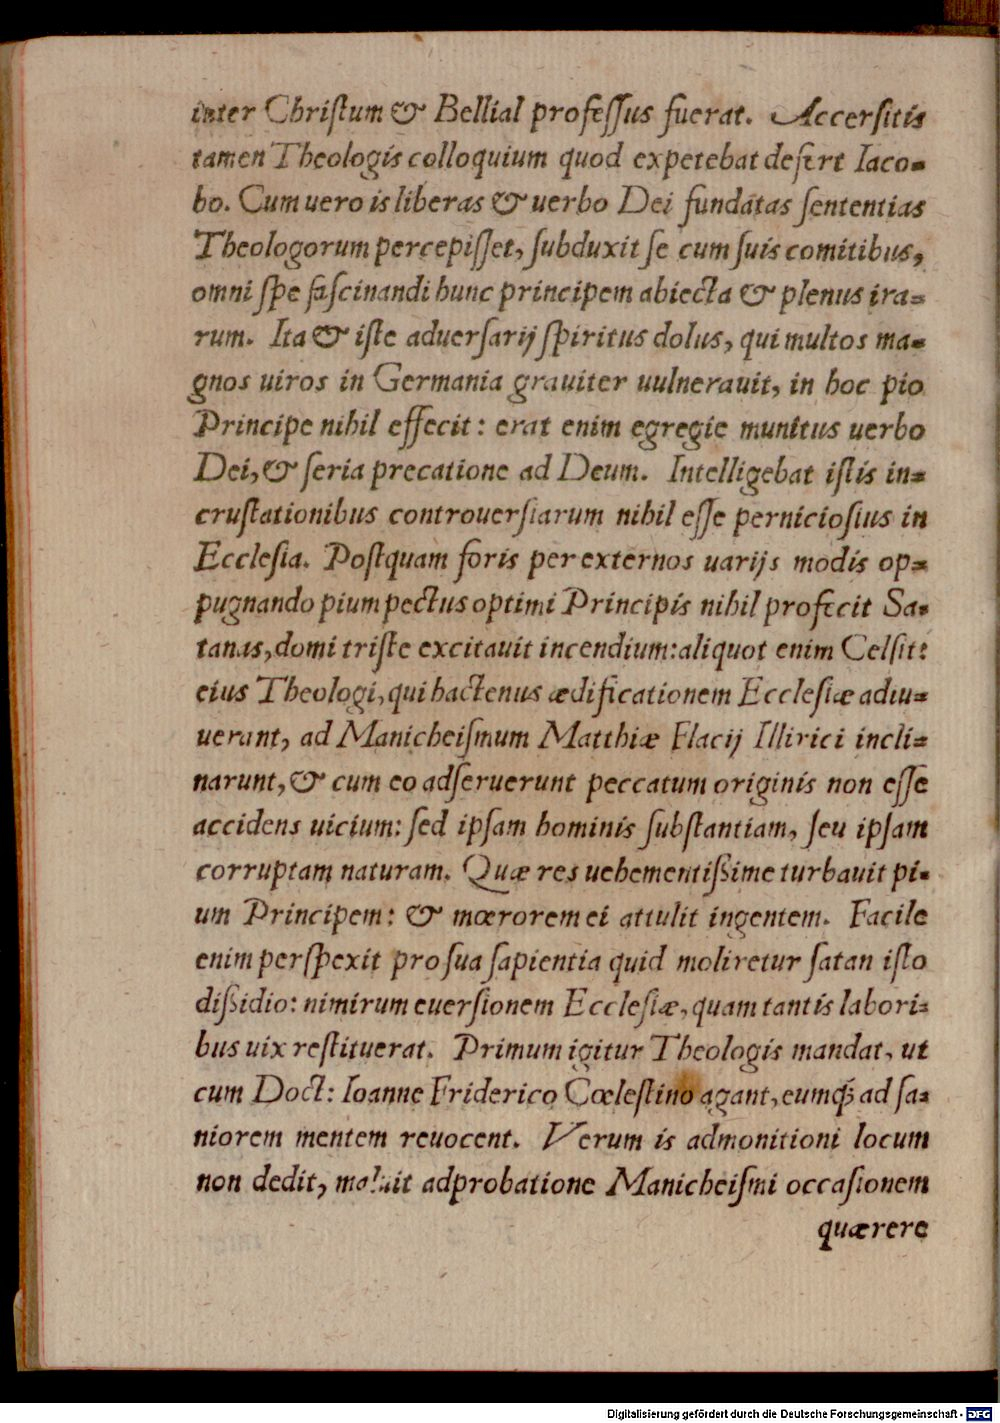 inter Chriſtum & Bellial profeſſus fuerat. Accerſitis
tamen Theologis colloquium quod expetebat defert Iaco-
bo. Cum uero is liberas & uerbo Dei fundatas ſententias
Theologorum percepiſſet, ſubduxit ſe cum ſuis comitibus,
omni ſpe faſcinandi hunc principem abiecta & plenus ira-
rum. Ita & iſte aduerſarij ſpiritus dolus, qui multos ma-
gnos uiros in Germania grauiter uulnerauit, in hoc pio
Principe nihil effecit: erat enim egregie munitus uerbo
Dei, & ſeria precatione ad Deum. Intelligebat iſtis in-
cruſtationibus controuerſiarum nihil eſſe pernicioſius in
Eccleſia. Poſtquam foris per externos uarijs modis op-
pugnando pium pectus optimi Principis nihil profecit Sa-
tanas, domi triſte excitauit incendium: aliquot enim Celſit:
eius Theologi, qui hactenus ædificationem Eccleſiæ adiu-
uerant, ad Manicheiſmum Matthiæ Flacij Illirici incli-
narunt, & cum eo adſeruerunt peccatum originis non eſſe
accidens uicium: ſed ipſam hominis ſubſtantiam, ſeu ipſam
corruptam naturam. Quæ res uehementiſsime turbauit pi-
um Principem: & mœrorem ei attulit ingentem. Facile
enim perſpexit pro ſua ſapientia quid moliretur ſatan iſto
diſsidio: nimirum euerſionem Eccleſiæ, quam tantis labori-
bus uix reſtituerat. Primum igitur Theologis mandat, ut
cum Doct: Ioanne Friderico Cœleſtino agant, eumq́; ad ſa-
niorem mentem reuocent. Verum is admonitioni locum
non dedit, maluit adprobatione Manicheiſmi occaſionem
quærere
Digitalisierung gefördert durch die Deutsche Forschungsgemeinschaft - DFG